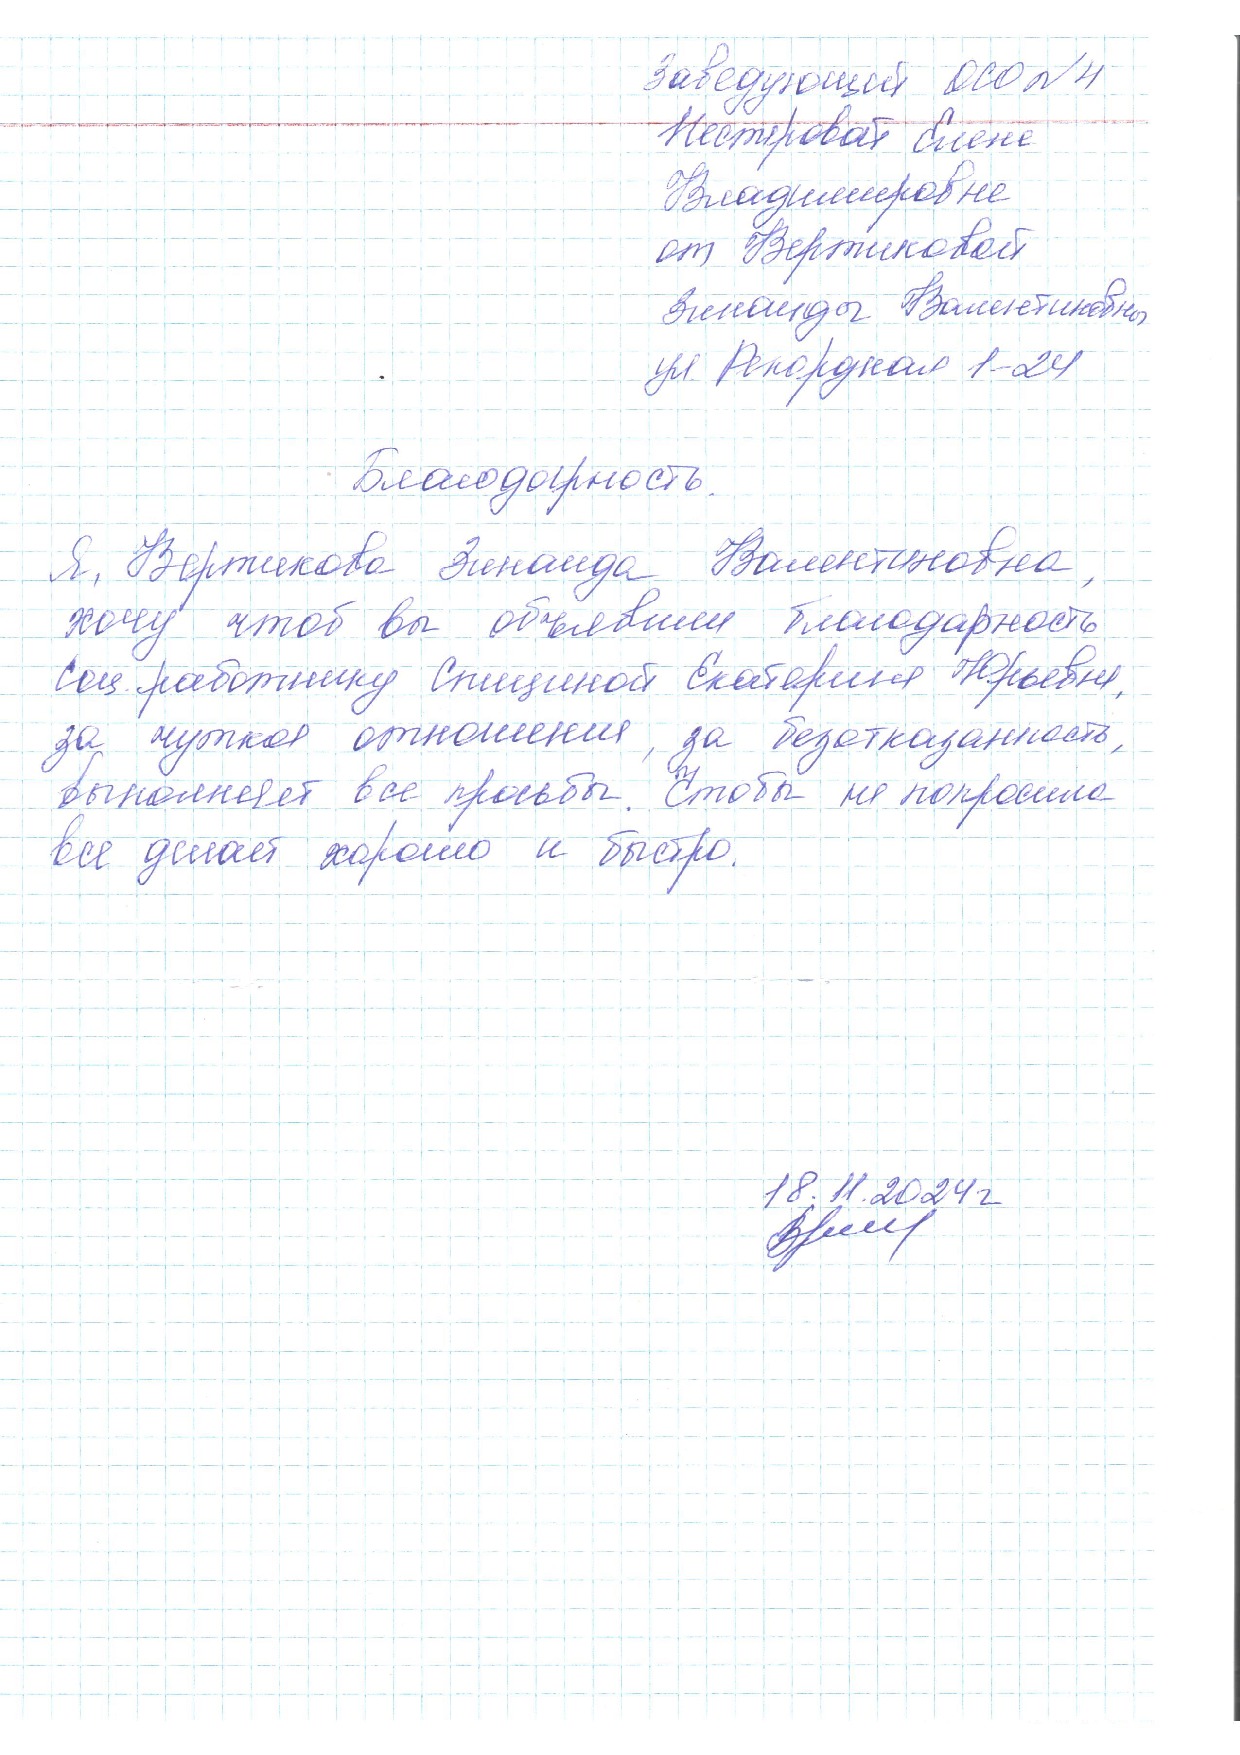 Заведующий ОСО №4
Нестеровой Елене
Владимировне
от Вертиковой
Зинаиды Валентиновны
ул. Рекордная 1-24
Благодарность.
Я, Вертикова Зинаида Валентиновна,
хочу чтоб вы объявили благодарность
соц. работнику Спициной Екатерине Юрьевне,
за чуткое отношения, за безотказанность,
выполняет все просьбы. Чтобы не попросила
все делает хорошо и быстро.
18.11.2024г